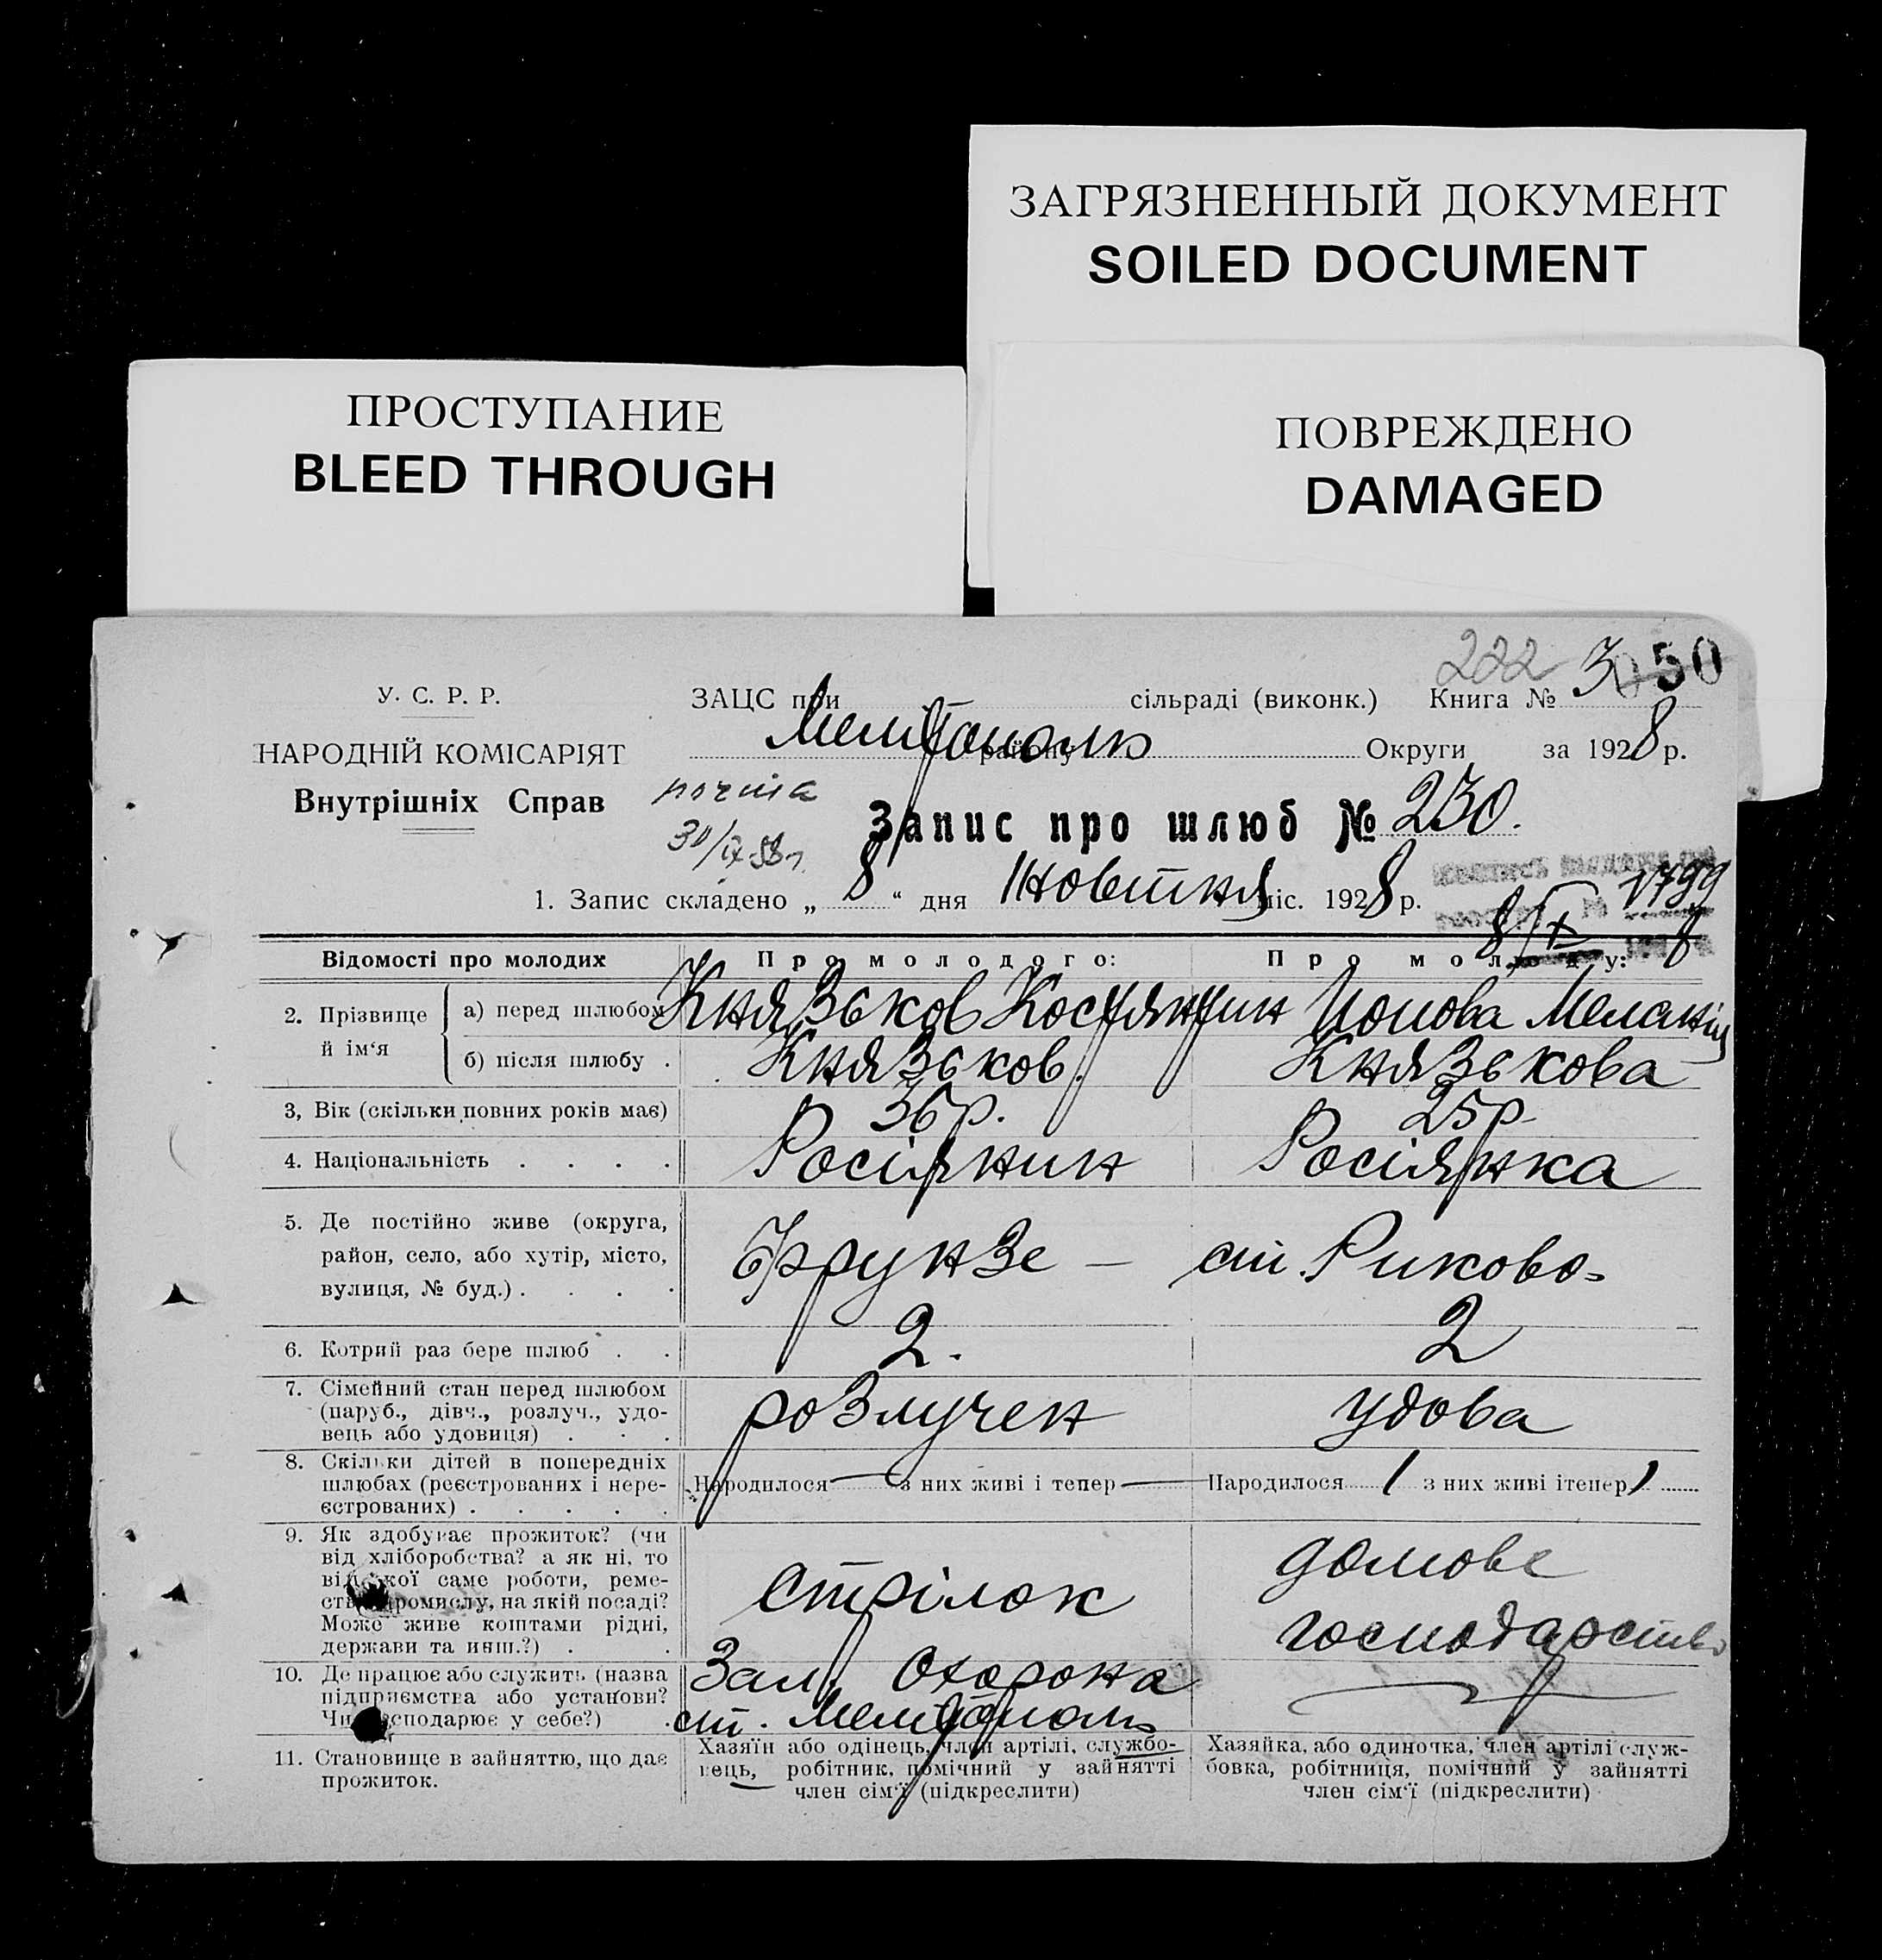 ЗАГРЯЗНЕННЫЙ ДОКУМЕНТ
SOILED DOCUMENT
ПРОСТУПАНИЕ
BLEED THROUGH
ПОВРЕЖДЕНО
DAMAGED
222 3 50
У. С. Р. Р.
НАРОДНІЙ КОМІСАРІЯТ
Внутрішніх Справ
ЗАЦС при сільраді (виконк.) Книга №
Мелітополь району Округи за 1928 р.
Запис про шлюб № 230.
1. Запис складено „ 8 “ дня Жовтня міс. 1928 р.
1799
Відомості про молодих Про молодого: Про молоду:
2. Прізвище й ім‘я а) перед шлюбом Князьков Костянтин Попова Меланія
б) після шлюбу . Князьков. Князькова
3, Вік (скільки повних років має) 36 р. 25 р.
4. Національність . . . . Росіянин Росіянка
5. Де постійно живе (округа,
район, село, або хутір, місто,
вулиця, № буд.) . . . . Фрунзе — ст. Риково-
6. Котрий раз бере шлюб . . 2. 2
7. Сімейний стан перед шлюбом
(паруб., дівч., розлуч., удо-
вець або удовиця) . . . розлучен удова
8. Скільки дітей в попередніх
шлюбах (реєстрованих і нере-
єстрованих) . . . . . Народилося — з них живі і тепер — Народилося 1 з них живі ітепер 1
9. Як здобуває прожиток? (чи
від хліборобства? а як ні, то
від якої саме роботи, реме-
ства, промислу, на якій посаді?
Може живе коштами рідні,
держави та инш.?) . . стрілок домове господарство
10. Де працює або служить (назва
підприємства або установи?
Чи господарює у себе?) . Зал. Охорона
ст. Мелітополь
11. Становище в зайняттю, що дає
прожиток.
Хазяїн або одінець, член артілі, службо-
вець, робітник, помічний у зайнятті
член сім‘ї (підкреслити)
Хазяйка, або одиночка, член артілі служ-
бовка, робітниця, помічний у зайнятті
член сім‘ї (підкреслити)